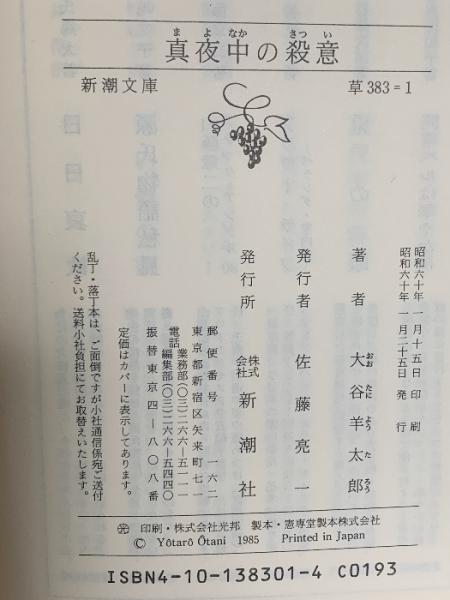 ま よ なか さつ い
真夜中の殺意
新潮文庫 草383=1
昭和六十年一月十五日印刷
昭和六十年一月二十五日発行
著者 大谷羊太郎
おお たに よう た ろう
発行者 佐藤亮一
発行所 株式会社 新潮社
郵便番号 一六二
東京都新宿区矢来町七一
電話 業務部(〇三)二六六―五一一一
編集部(〇三)二六六―五四四〇
振替東京四―八〇八番
定価はカバーに表示してあります。
乱丁・落丁本は、ご面倒ですが小社通信係宛ご送付
ください。送料小社負担にてお取替えいたします。
印刷・株式会社光邦 製本・憲専堂製本株式会社
© Yôtarô Ôtani 1985 Printed in Japan
ISBN4-10-138301-4 C0193